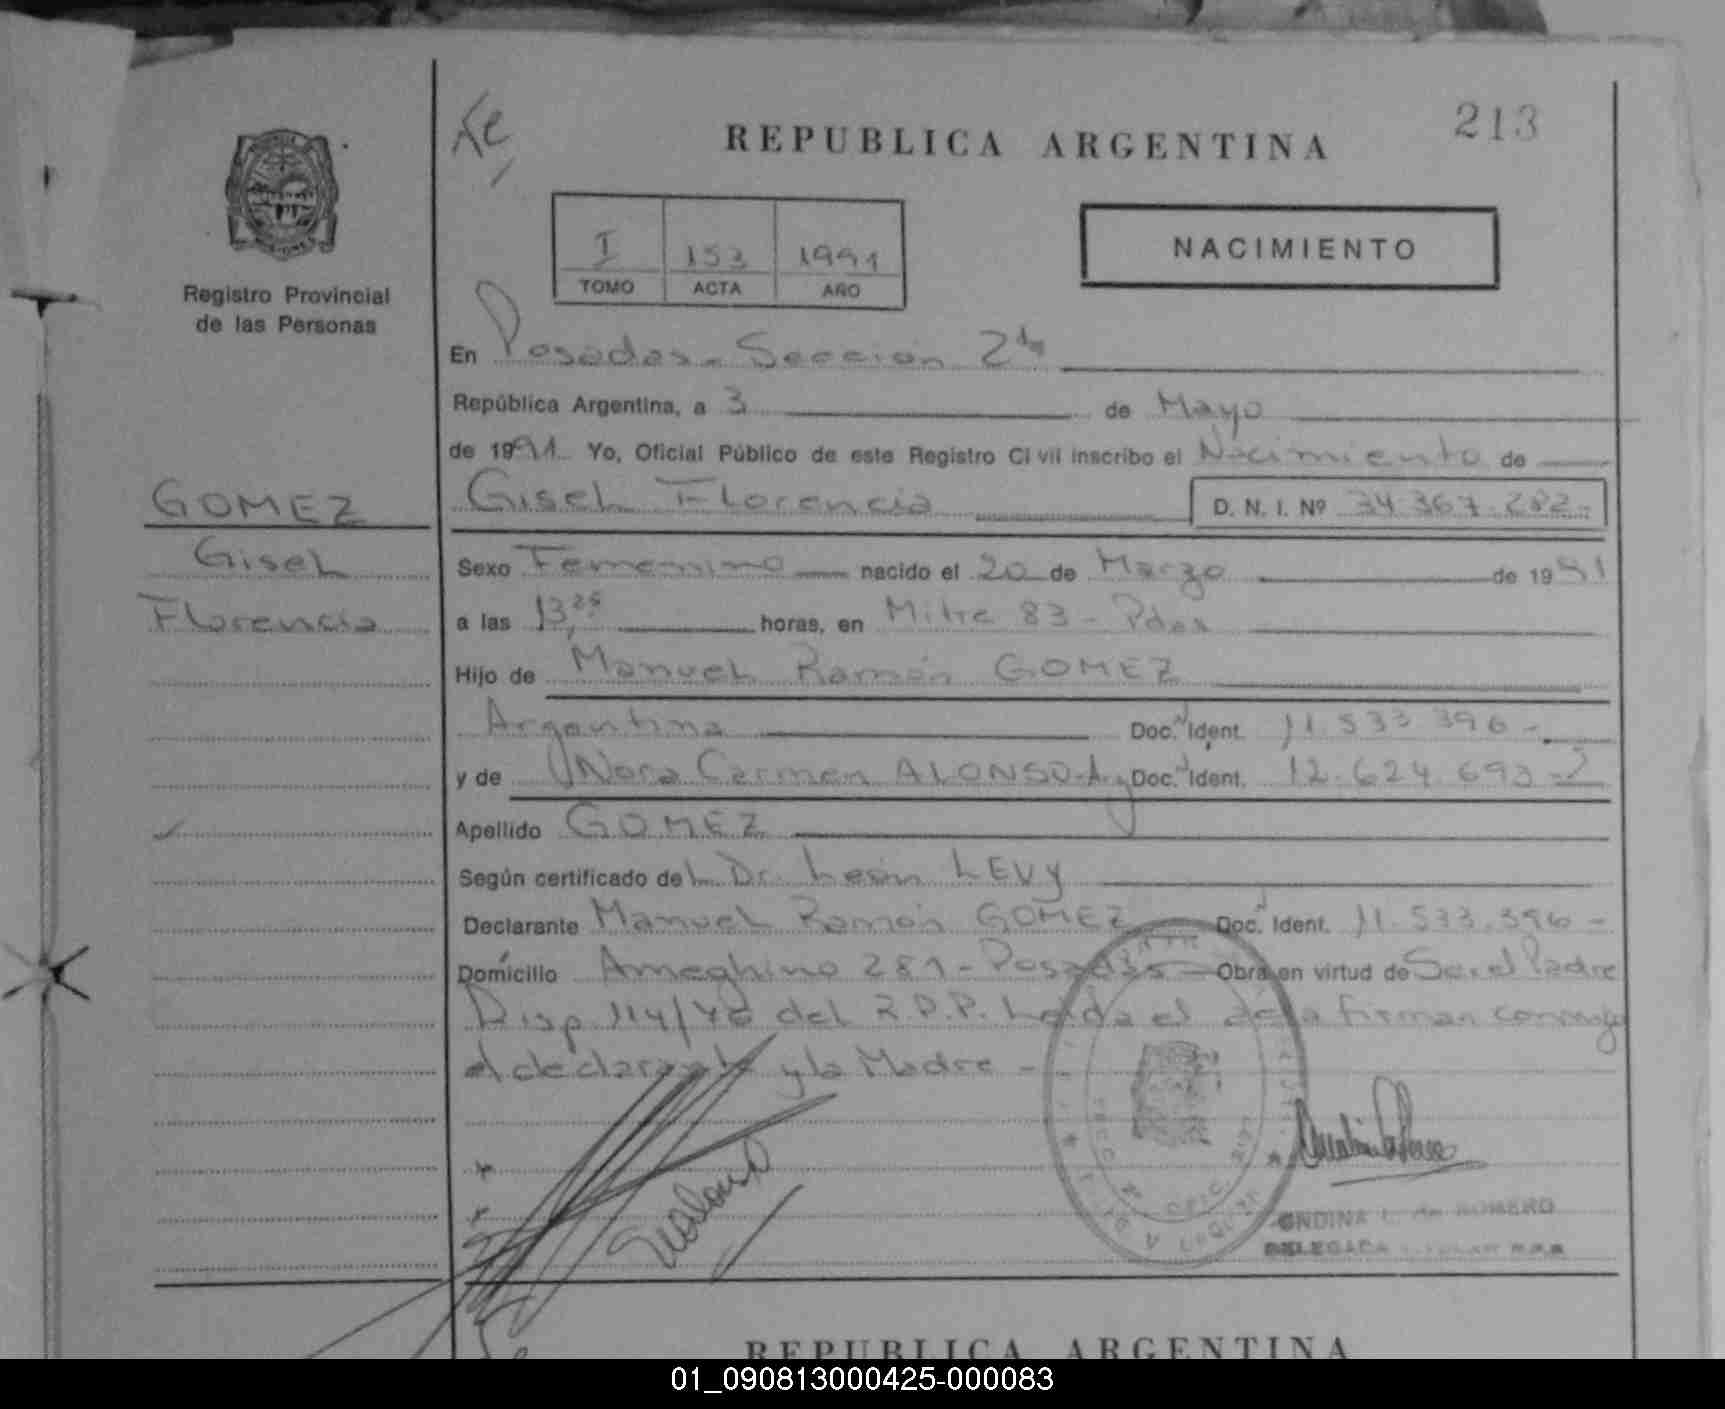 213
Fe
REPUBLICA ARGENTINA
I 153 1991
TOMO ACTA AÑO
NACIMIENTO
Registro Provincial
de las Personas
En Posadas - Sección 2da
República Argentina, a 3 de Mayo
de 1991 Yo, Oficial Público de este Registro Civil inscribo el Nacimiento de
GOMEZ
Gisel Florencia D. N. I. Nº 34.367.282-
Gisel
Sexo Femenino nacido el 20 de Marzo de 1991
Florencia
a las 13,25 horas, en Mitre 83 - Pdas
Hijo de Manuel Ramón GOMEZ
Argentina Doc. Ident. 11.533.396-
y de Nora Carmen ALONSO-Arg Doc. Ident. 12.624.693-
Apellido GOMEZ
Según certificado del Dr. León LEVY
Declarante Manuel Ramón GOMEZ Doc. Ident. 11.533.396-
Domicilio Ameghino 281 - Posadas Obra en virtud de Ser el Padre
Disp. 114/78 del R.P.P. Leida el acta firman conmigo
el declarante y la Madre -
ONDINA L. de ROMERO
DELEGADA TITULAR R.P.P.
REPUBLICA ARGENTINA
01_090813000425-000083